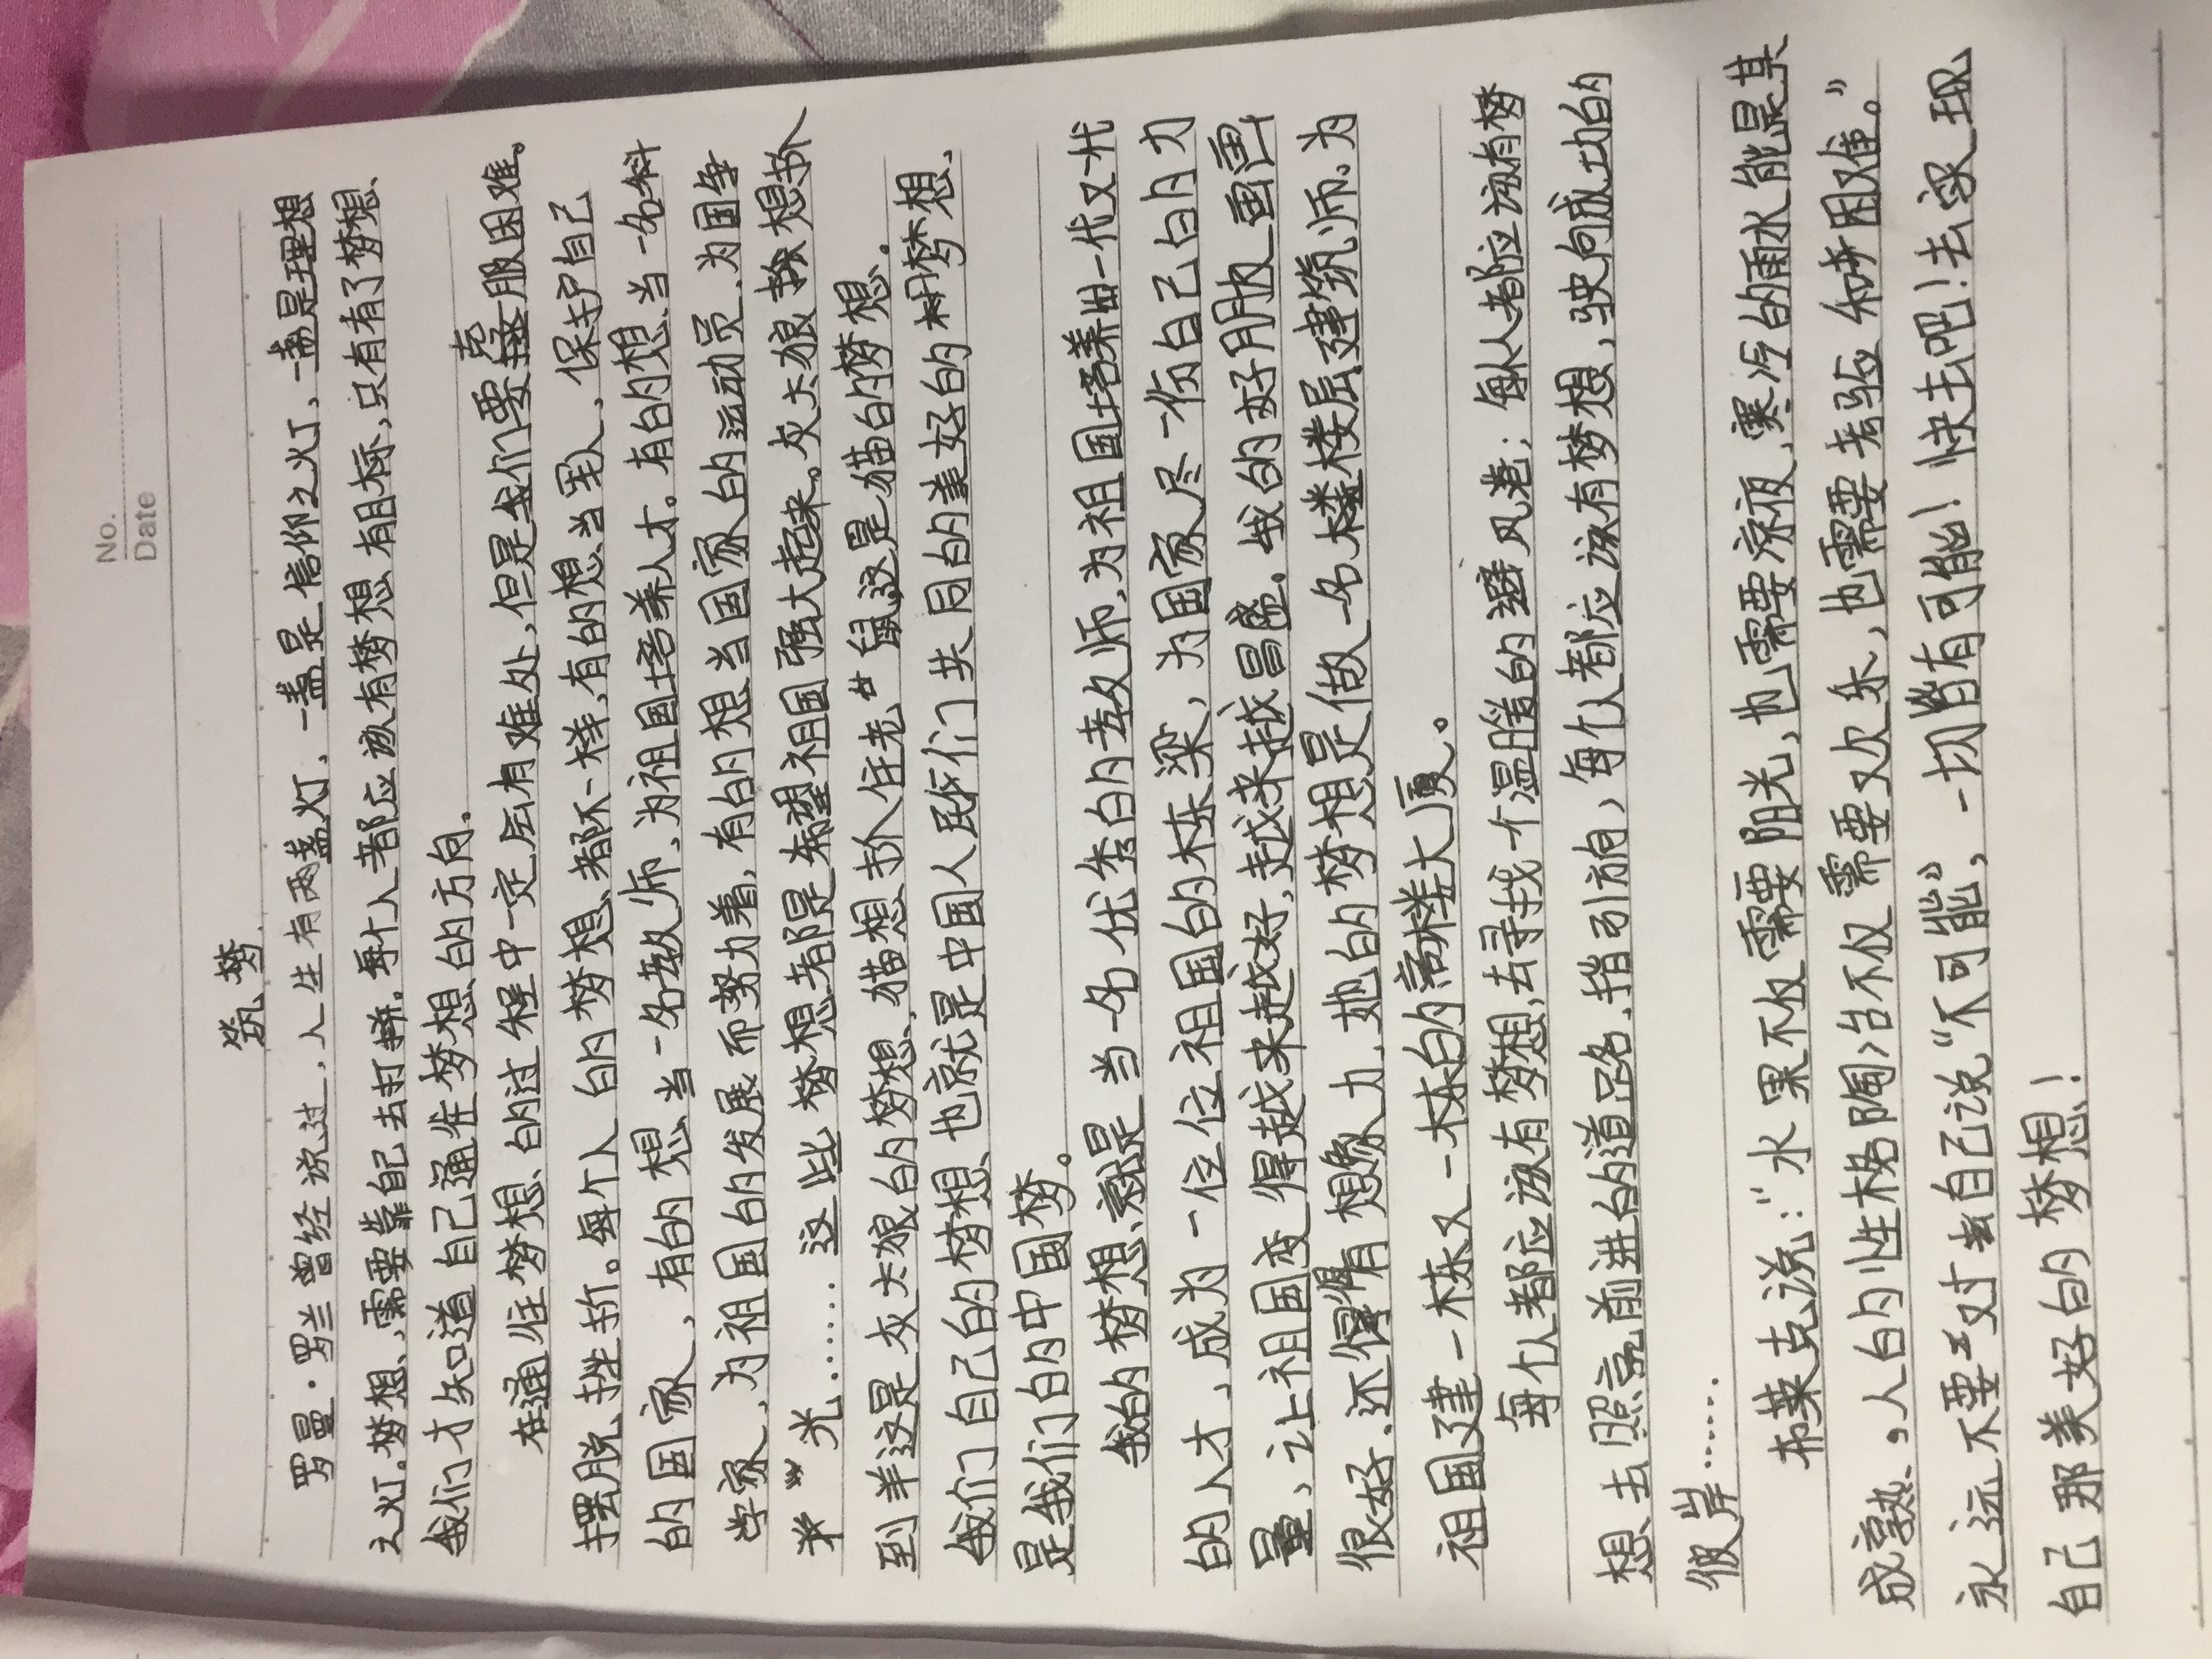 No.
Date
筑梦
罗曼·罗兰曾经说过，人生有两盏灯，一盏是信仰之火灯，一盏是理想
之火灯。梦想，需要靠自己去打拼。每个人都应该有梦想，有目标，只有有了梦想，
我们才知道自己通往梦想的方向。
在通往梦想的过程中一定会有难处，但是我们要克服困难。
摆脱挫折。每个人的梦想都不一样，有的想当军人，保护自己
的国家，有的想当一名教师，为祖国培养人才。有的想当一名科
学家，为祖国的发展而努力着，有的想当国家的运动员，为国争
光……这些梦想都是希望祖国强大起来。灰太狼想扑
到羊这是灰太狼的梦想，猫想扑住老鼠这是猫的梦想。
我们自己的梦想，也就是中国人民们共同的美好的梦想，
是我们的中国梦。
我的梦想，就是当一名优秀的教师，为祖国培养出一代又一代
的人才，成为一位位祖国的栋梁，为国家尽一份自己的力
量，让祖国变得越来越好，越来越昌盛。我的好朋友画画
很好，还很有想象力，她的梦想是做一名楼层建筑师，为
祖国建一栋又一栋的高楼大厦。
每个人都应该有梦想，去寻找一个温暖的避风港；每个人都应该有梦
想，去照亮前进的道路，指引方向；每个人都应该有梦想，驶向成功的
彼岸……
布莱克说：“水果不仅需要阳光，也需要凉夜，寒冷的雨水能是其
成熟。人的性格陶冶不仅需要欢乐，也需要考验和困难。”
永远不要对自己说“不可能”，一切皆有可能！快去吧！去实现
自己那美好的梦想！